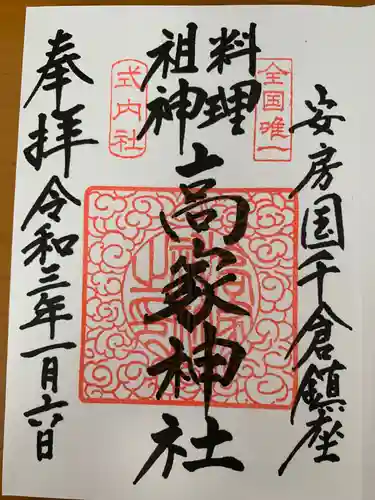 安房国千倉鎮座
全国唯一
料理
祖神
式内社
高家神社
奉拝
令和三年一月六日